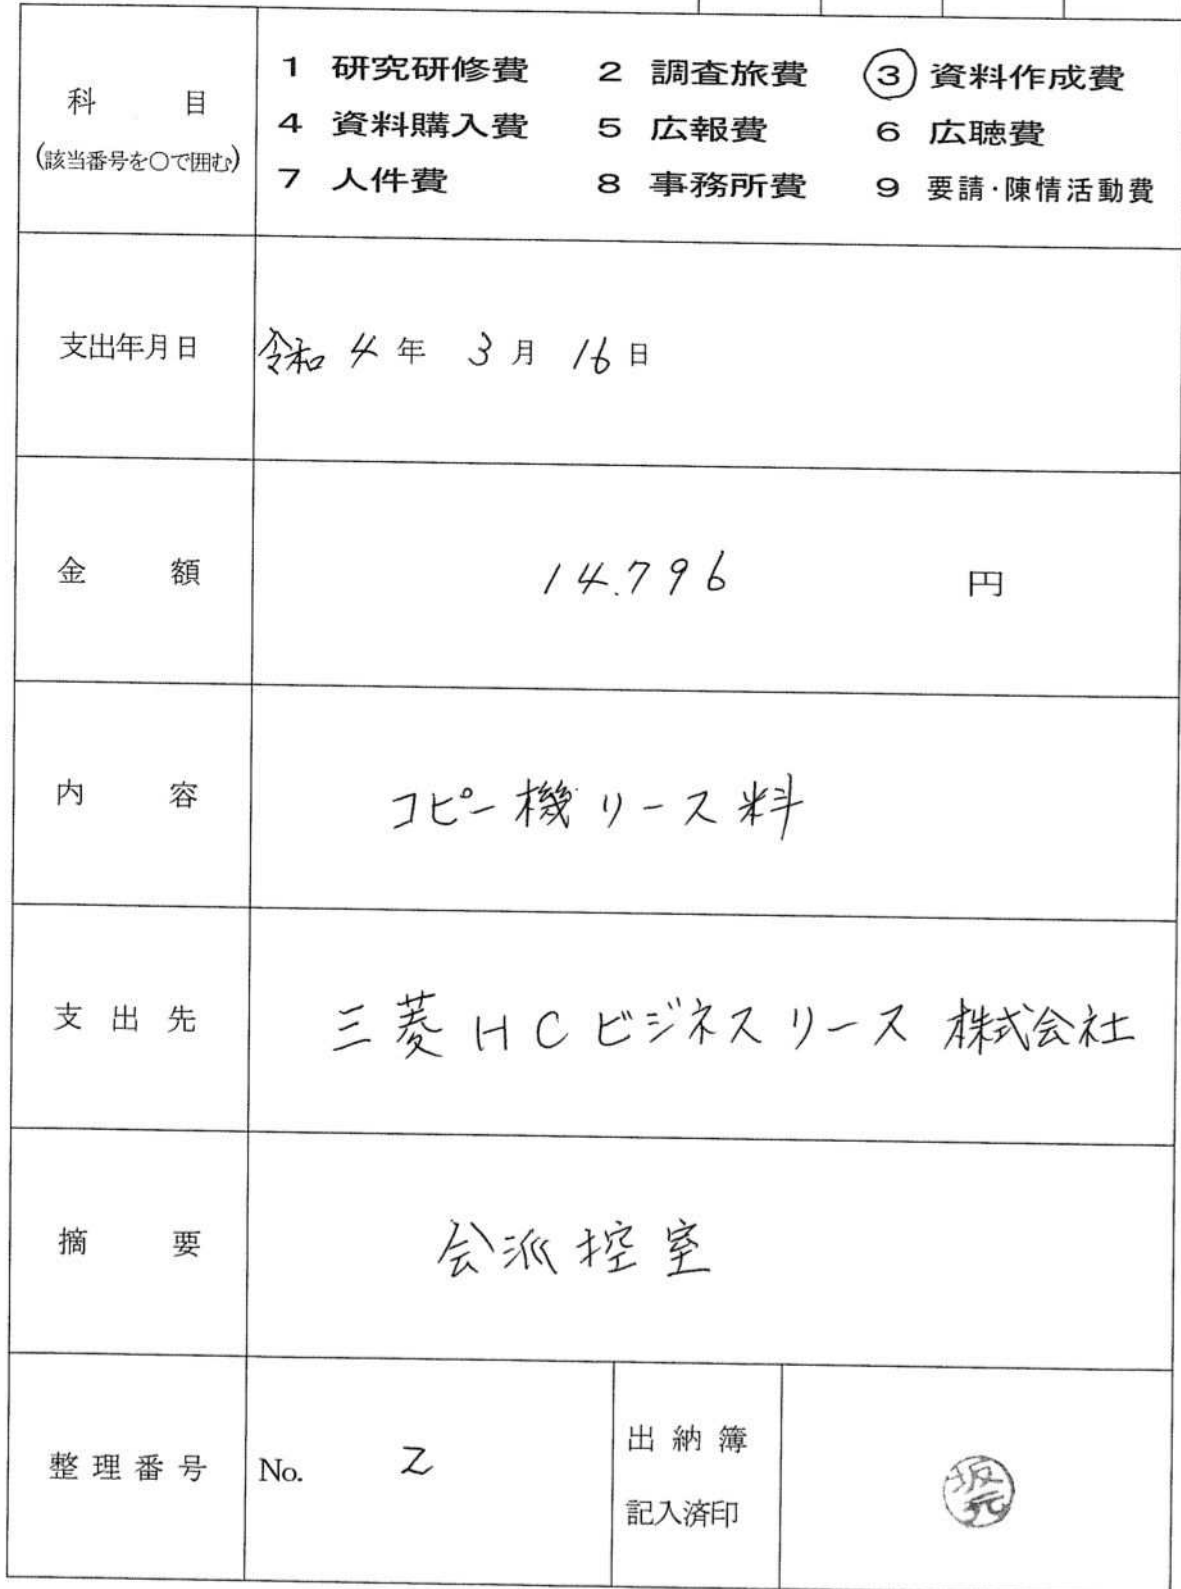 科 目
(該当番号を○で囲む)
1 研究研修費 2 調査旅費 3 資料作成費
4 資料購入費 5 広報費 6 広聴費
7 人件費 8 事務所費 9 要請・陳情活動費
支出年月日 令和 4 年 3 月 16 日
金 額 14.796 円
内 容 コピー機リース料
支出先 三菱HCビジネスリース株式会社
摘 要 会派控室
整理番号 No. 2
出納簿
記入済印
坂元